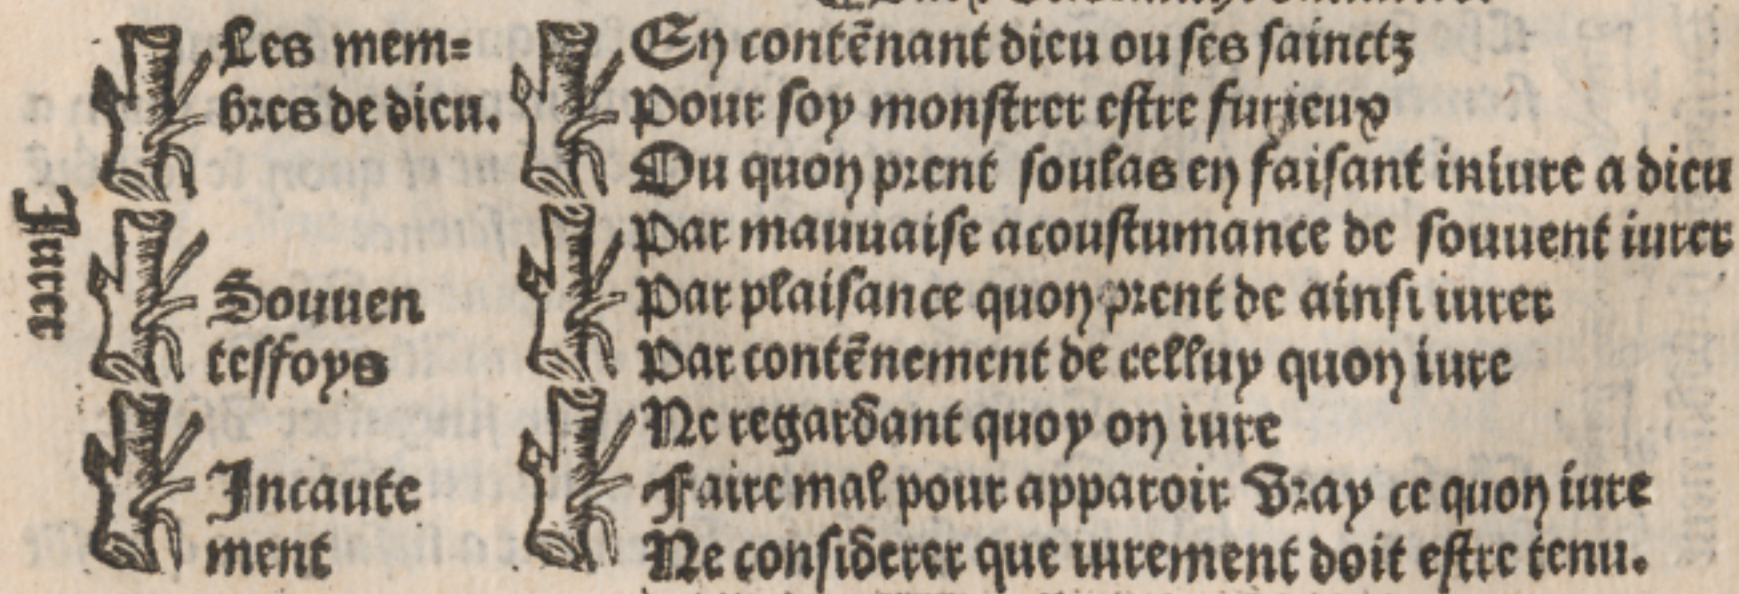 Jurer
Les mem=
bres de dieu.
En contēnant dieu ou ses sainctz
Pour soy monstrer estre furieux
Ou quon prent soulas en faisant iniure a dieu
Souuen
tesfoys
Par mauuaise acoustumance de souuent iurer
Par plaisance quon prent de ainsi iurer
Par contēnement de celluy quon iure
Incaute
ment
Ne regardant quoy on iure
Faire mal pour apparoir vray ce quon iure
Ne considerer que iurement doit estre tenu.